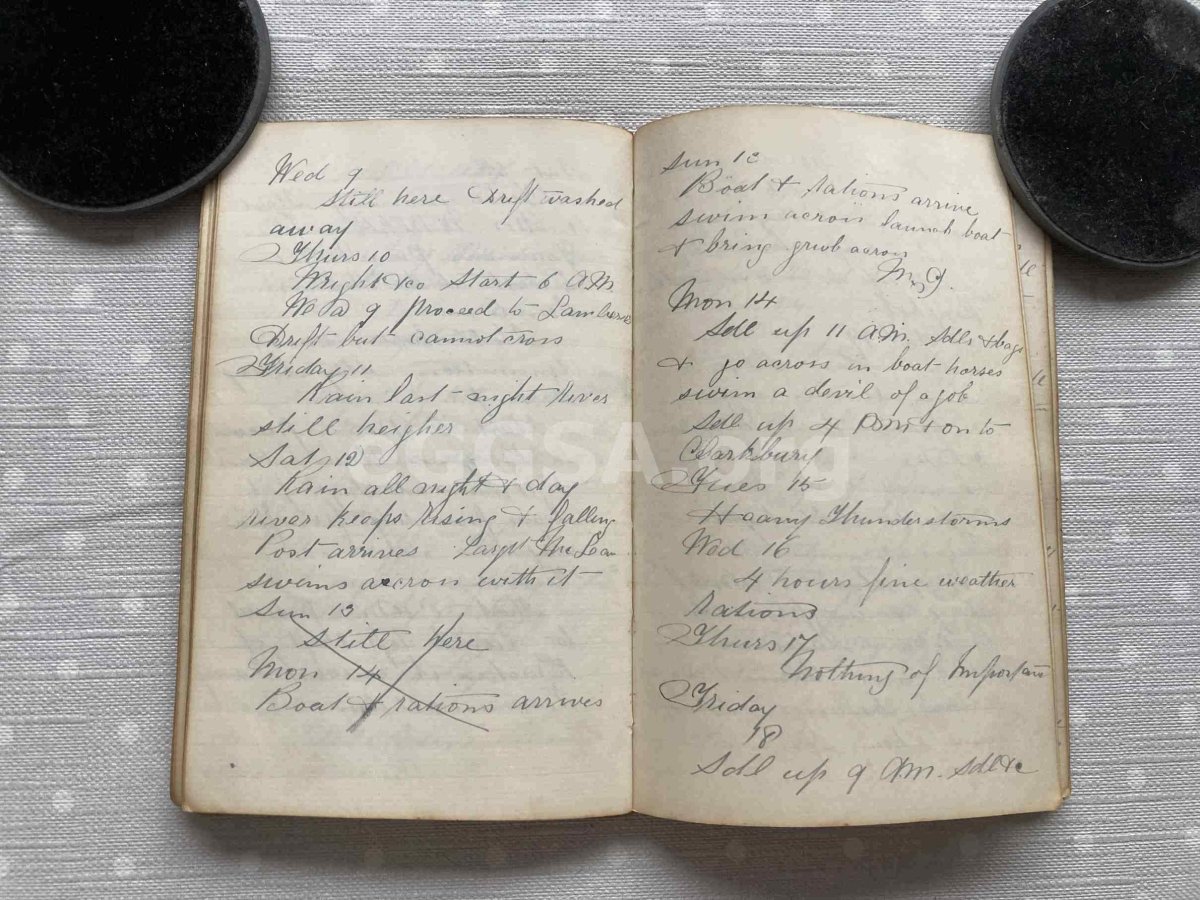 Wed 9
Still here Drift washed
away
Thurs 10
Wright & co Start 6 AM.
We proceed to
Drift but cannot cross
Friday 11
Rain last night River
still heigher
Sat 12
Rain all night & day
river keeps rising & falling
Post arrives
swims across with it
Sun 13
Still Here
Mon 14
Boat & rations arrives
Sun 13
Boat & rations arrive
swim across launch boat
& bring grub across
Mon 14
Sdl up 11 AM. Sdls & bags
& go across in boat horses
swim a devil of a job
Sdl up 4 PM & on to
Clarkbury
Tues 15
Heavy Thunderstorms
Wed 16
4 hours fine weather
rations
Thurs 17
Nothing of Importan
Friday
18
Sdl up 9 AM. Sdl
eGGSA.org